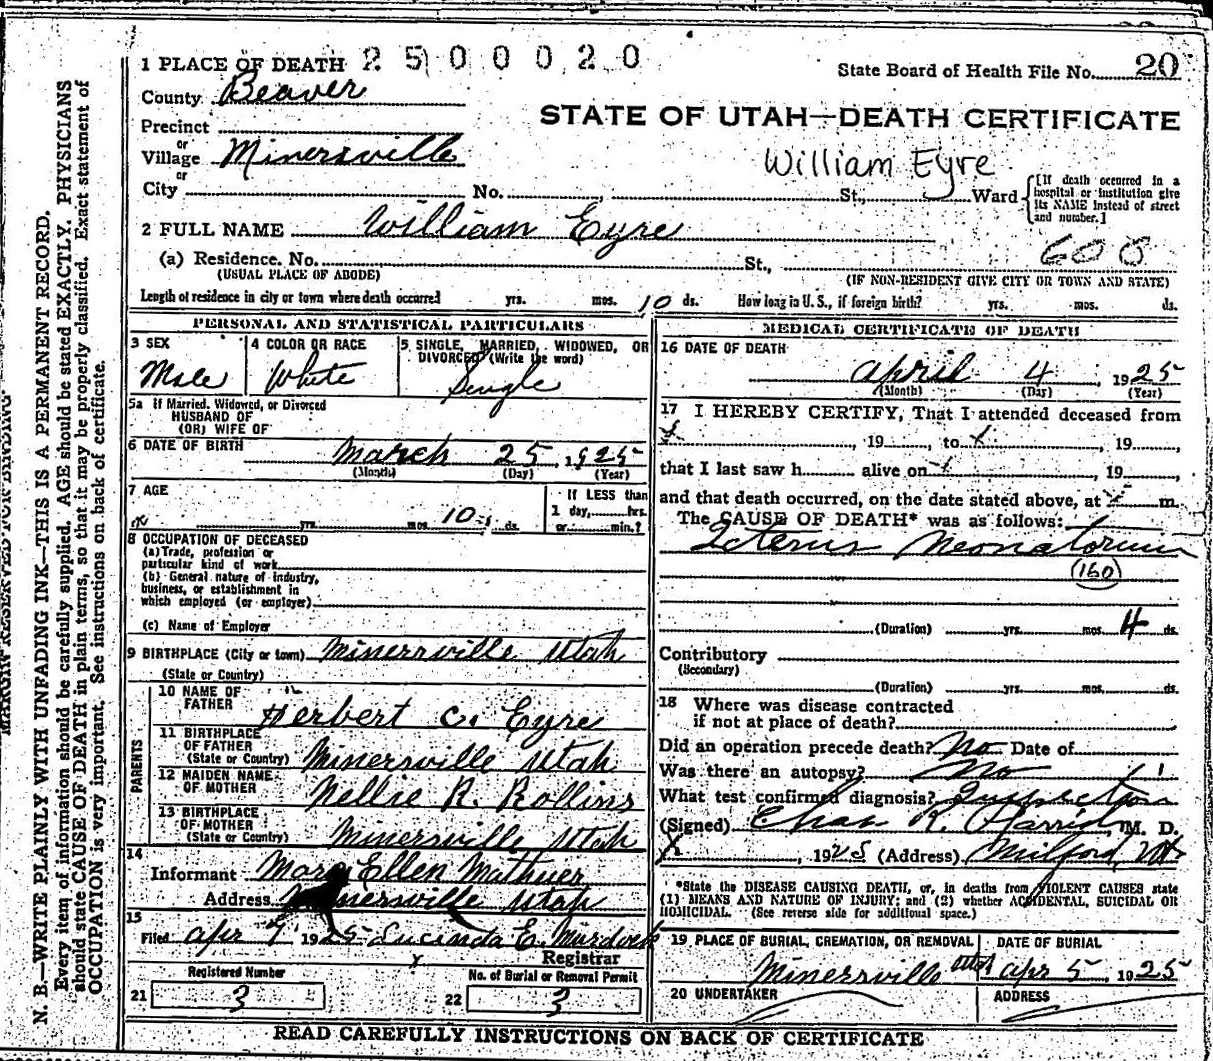 1 PLACE OF DEATH 2500020
State Board of Health File No. 20
County Beaver
STATE OF UTAH—DEATH CERTIFICATE
Precinct
or
Village Minersville
William Eyre
or
City No. St., Ward
[If death occurred in a hospital or institution give its NAME instead of street and number.]
2 FULL NAME William Eyre
(a) Residence. No. St., 600
(USUAL PLACE OF ABODE) (IF NON-RESIDENT GIVE CITY OR TOWN AND STATE)
Length of residence in city or town where death occurred yrs. mos. 10 ds. How long in U. S., if foreign birth? yrs. mos. ds.
PERSONAL AND STATISTICAL PARTICULARS
3 SEX 4 COLOR OR RACE 5 SINGLE, MARRIED, WIDOWED, OR DIVORCED (Write the word)
Male White Single
5a If Married, Widowed, or Divorced
HUSBAND OF
(OR) WIFE OF
6 DATE OF BIRTH March 25, 1925
(Month) (Day) (Year)
7 AGE If LESS than
1 day, hrs.
yrs. mos. 10 ds. or min.?
8 OCCUPATION OF DECEASED
(a) Trade, profession or
particular kind of work
(b) General nature of industry,
business, or establishment in
which employed (or employer)
(c) Name of Employer
9 BIRTHPLACE (City or town) Minersville Utah
(State or Country)
PARENTS
10 NAME OF FATHER Herbert C. Eyre
11 BIRTHPLACE OF FATHER (State or Country) Minersville Utah
12 MAIDEN NAME OF MOTHER Nellie R. Rollins
13 BIRTHPLACE OF MOTHER (State or Country) Minersville, Utah
14
Informant Mary Ellen Mathuer
Address Minersville Utah
15
Filed Apr 7 1925 Lucinda E. Murdock
Registrar
Registered Number No. of Burial or Removal Permit
21 3 22 3
MEDICAL CERTIFICATE OF DEATH
16 DATE OF DEATH
April 4, 1925
(Month) (Day) (Year)
17 I HEREBY CERTIFY, That I attended deceased from
x, 19, to x, 19,
that I last saw h alive on x 19,
and that death occurred, on the date stated above, at x m.
The CAUSE OF DEATH* was as follows:
Icterus Neonatorum
(160)
(Duration) yrs. mos. 4 ds.
Contributory
(Secondary)
(Duration) yrs. mos. ds.
18 Where was disease contracted
if not at place of death?
Did an operation precede death? No Date of
Was there an autopsy? No
What test confirmed diagnosis? Inspection
(Signed) Chas R. Harris, M. D.
x, 1925 (Address) Milford, Ut
*State the DISEASE CAUSING DEATH, or, in deaths from VIOLENT CAUSES state
(1) MEANS AND NATURE OF INJURY; and (2) whether ACCIDENTAL, SUICIDAL OR
HOMICIDAL. (See reverse side for additional space.)
19 PLACE OF BURIAL, CREMATION, OR REMOVAL DATE OF BURIAL
Minersville Utah Apr 5, 1925
20 UNDERTAKER ADDRESS
READ CAREFULLY INSTRUCTIONS ON BACK OF CERTIFICATE
MARGIN RESERVED FOR BINDING
N. B.—WRITE PLAINLY WITH UNFADING INK—THIS IS A PERMANENT RECORD.
Every item of information should be carefully supplied. AGE should be stated EXACTLY. PHYSICIANS
should state CAUSE OF DEATH in plain terms, so that it may be properly classified. Exact statement of
OCCUPATION is very important. See instructions on back of certificate.